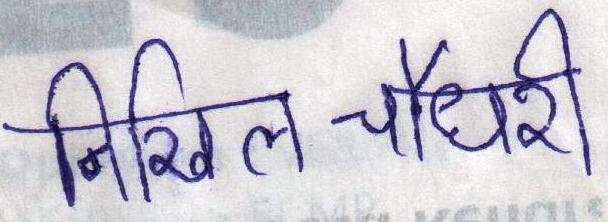 निखिल चौधरी